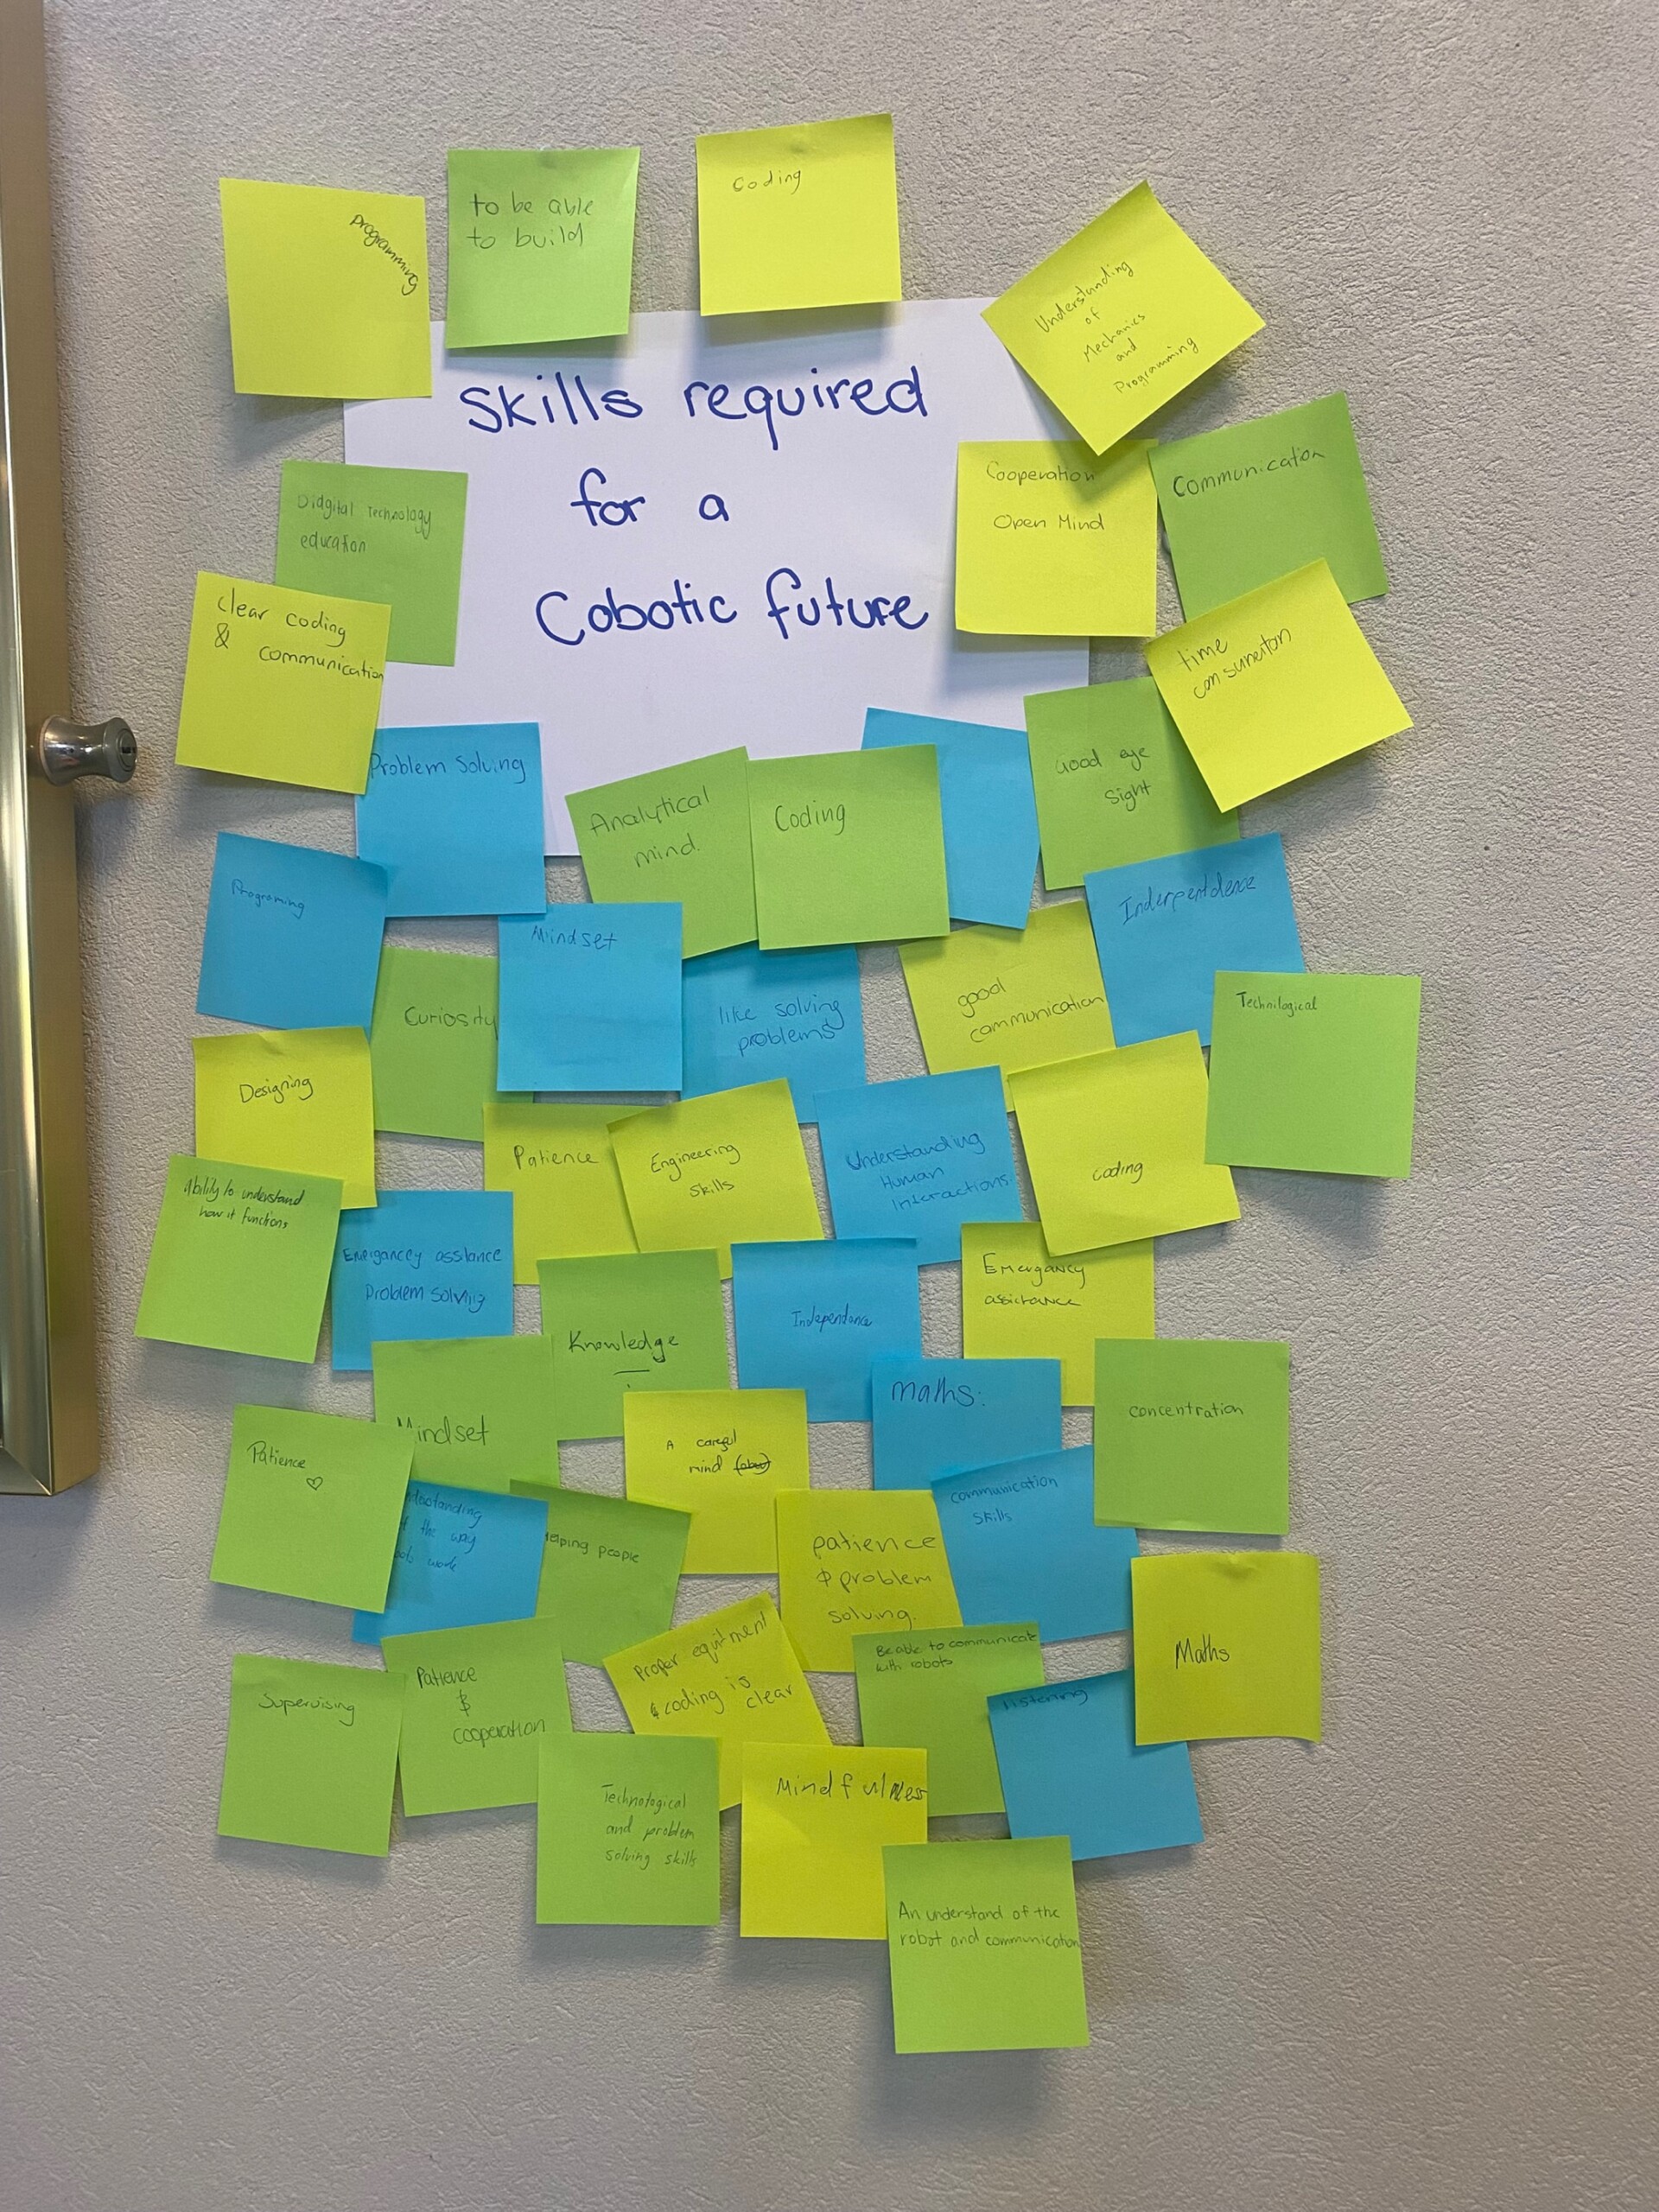 Programming
to be able
to build
Coding
Understanding
of
Mechanics
and
Programming
Skills required
for a
Cobotic future
Cooperation
Open Mind
Communication
Didgital Technology
education
clear coding
& communication
time
Problem Solving
Analytical
mind.
Coding
Good eye
sight
Programing
Mindset
Inderpentdence
Curiosity
like solving
problems
good
communication
Technilogical
Designing
Patience
Engineering
skills
Understanding
Human
Interactions
coding
Ability to understand
how it functions
Emergancey assiance
Problem solving
Knowledge
Independance
Emergancy
assistance
Maths:
concentration
Mindset
Patience
A careful
mind
communication
skills
the way
work
Helping people
patience
& problem
solving.
Maths
Supervising
Patience
&
cooperation
Proper equitment
& coding is
clear
Be able to communicate
with robots
listening
Technological
and problem
solving skills
Mindfulness
An understand of the
robot and communication